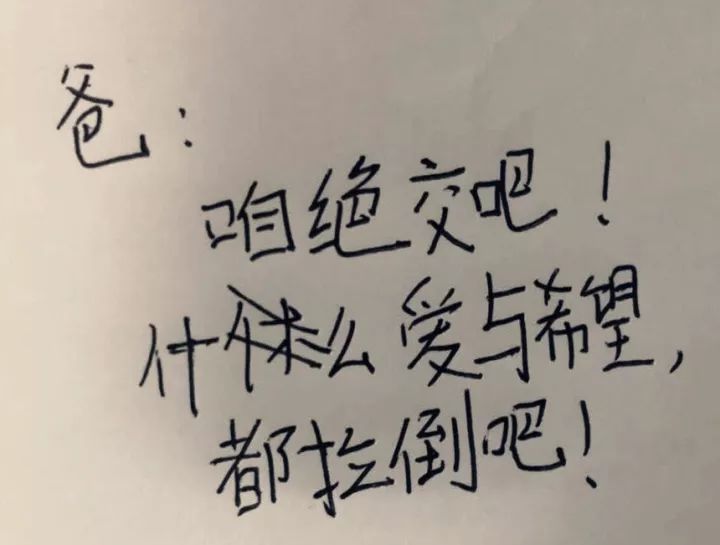 爸：
咱绝交吧！
什么爱与希望，
都拉倒吧！